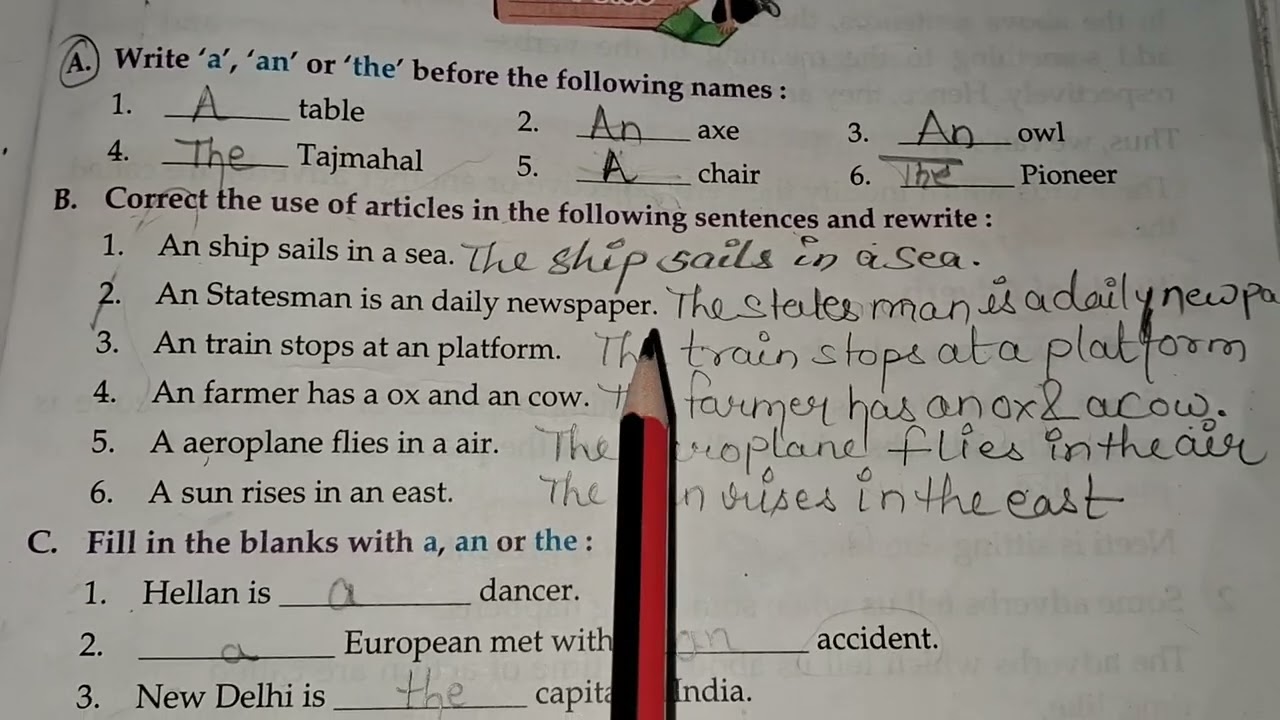 A. Write 'a', 'an' or 'the' before the following names :
1. A table 2. An axe 3. An owl
4. The Tajmahal 5. A chair 6. The Pioneer
B. Correct the use of articles in the following sentences and rewrite :
1. An ship sails in a sea. The ship sails in a sea.
2. An Statesman is an daily newspaper. The states man is a daily newpa
3. An train stops at an platform. Th train stops at a platform
4. An farmer has a ox and an cow. farmer has an ox & a cow.
5. A aeroplane flies in a air. The roplane flies in the air
6. A sun rises in an east. The n rises in the east
C. Fill in the blanks with a, an or the :
1. Hellan is a dancer.
2. a European met with an accident.
3. New Delhi is the capita India.